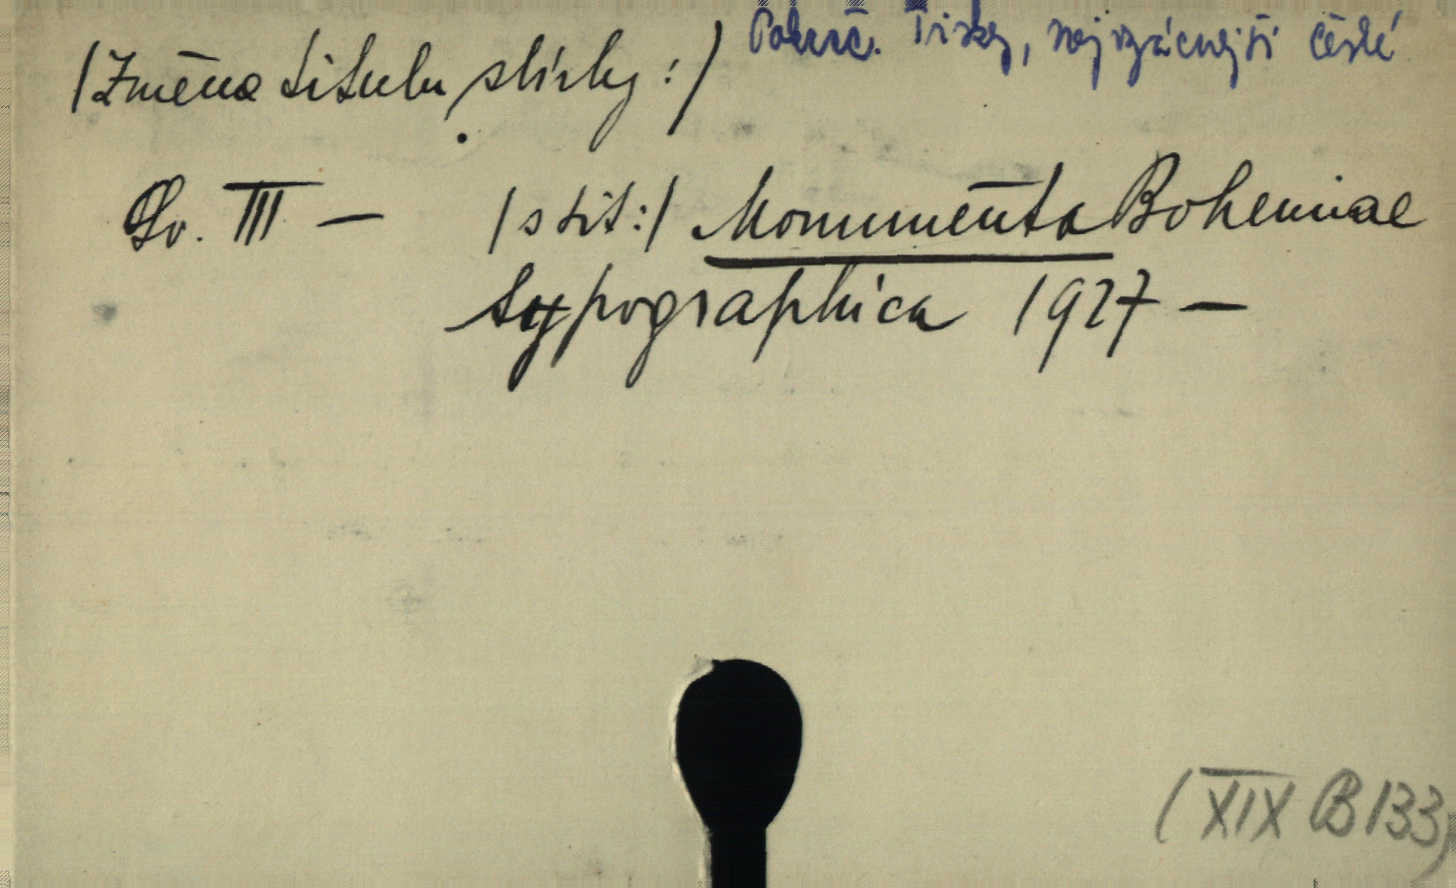 Pokrač. Tisky, nejvzácnější české
/Změna titulu sbírky:/
Sv. III — /s tit:/ Monumenta Bohemiae
typographica 1927 —
(XIX B 133)